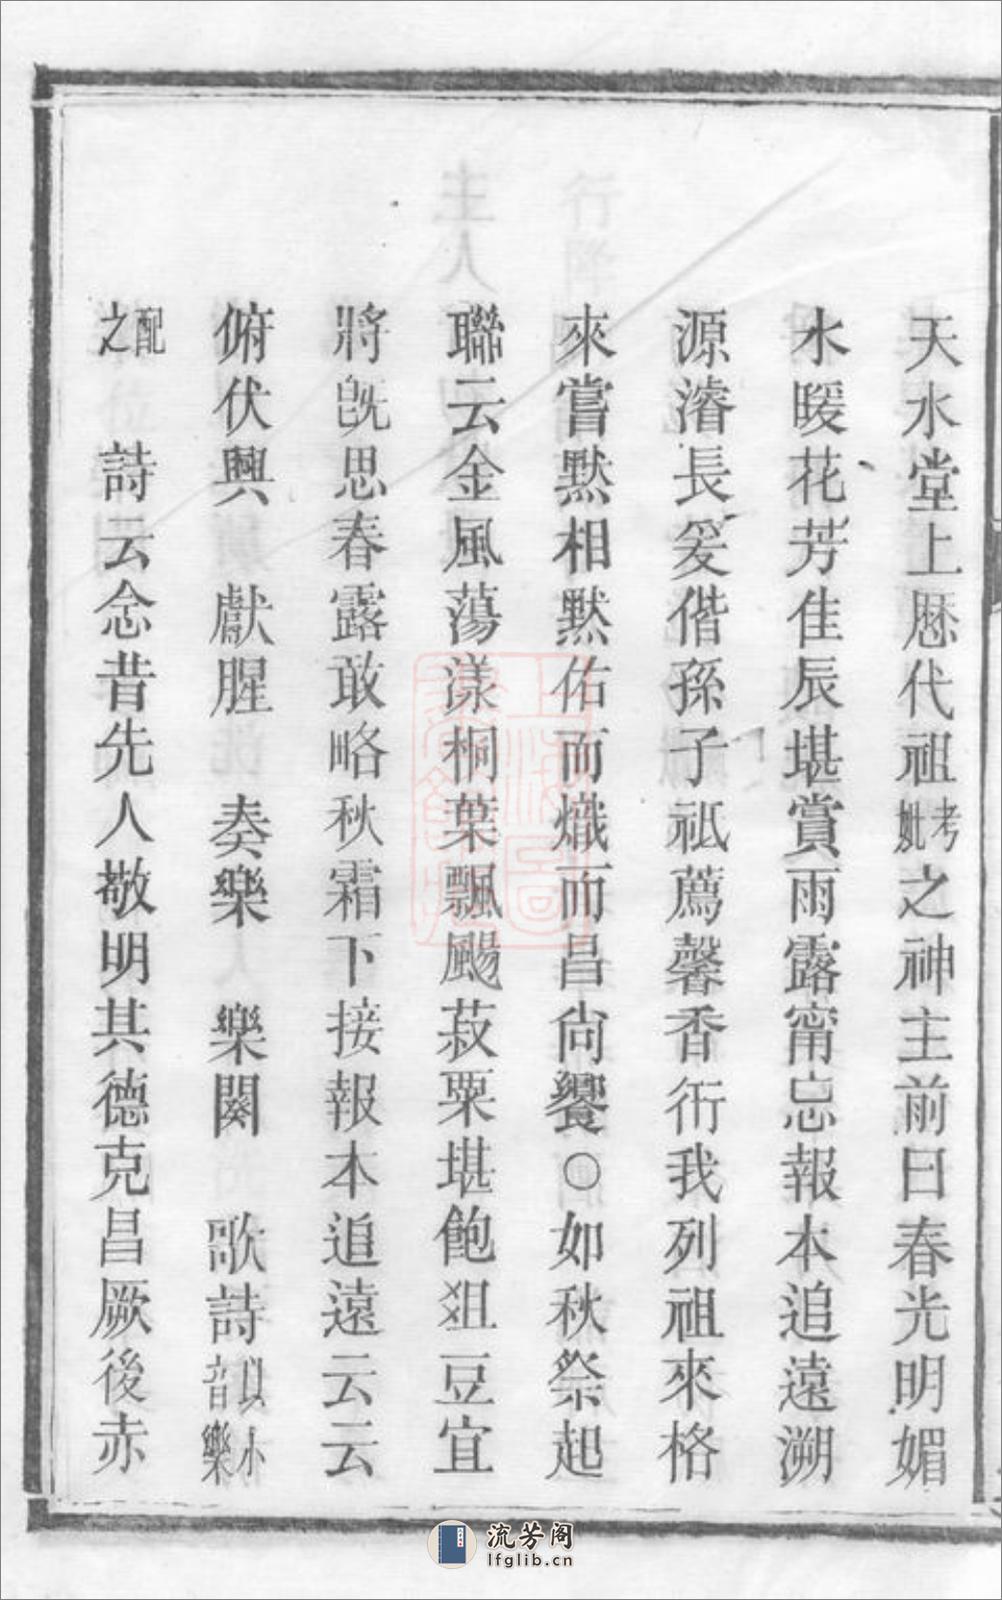 天水堂上厯代祖考妣之神主前曰春光明媚
水暖花芳佳辰堪賞雨露甯忘報本追遠溯
源濬長爰偕孫子祗薦馨香衎我列祖來格
來嘗默相默佑而熾而昌尙饗○如秋祭起
聯云金風蕩漾桐葉飄颺菽粟堪飽俎豆宜
將旣思春露敢略秋霜下接報本追遠云云
俯伏興 獻腥 奏樂 樂闋 歌詩以小音樂
配之 詩云念昔先人敬明其德克昌厥後赤
流芳阁
lfglib.cn